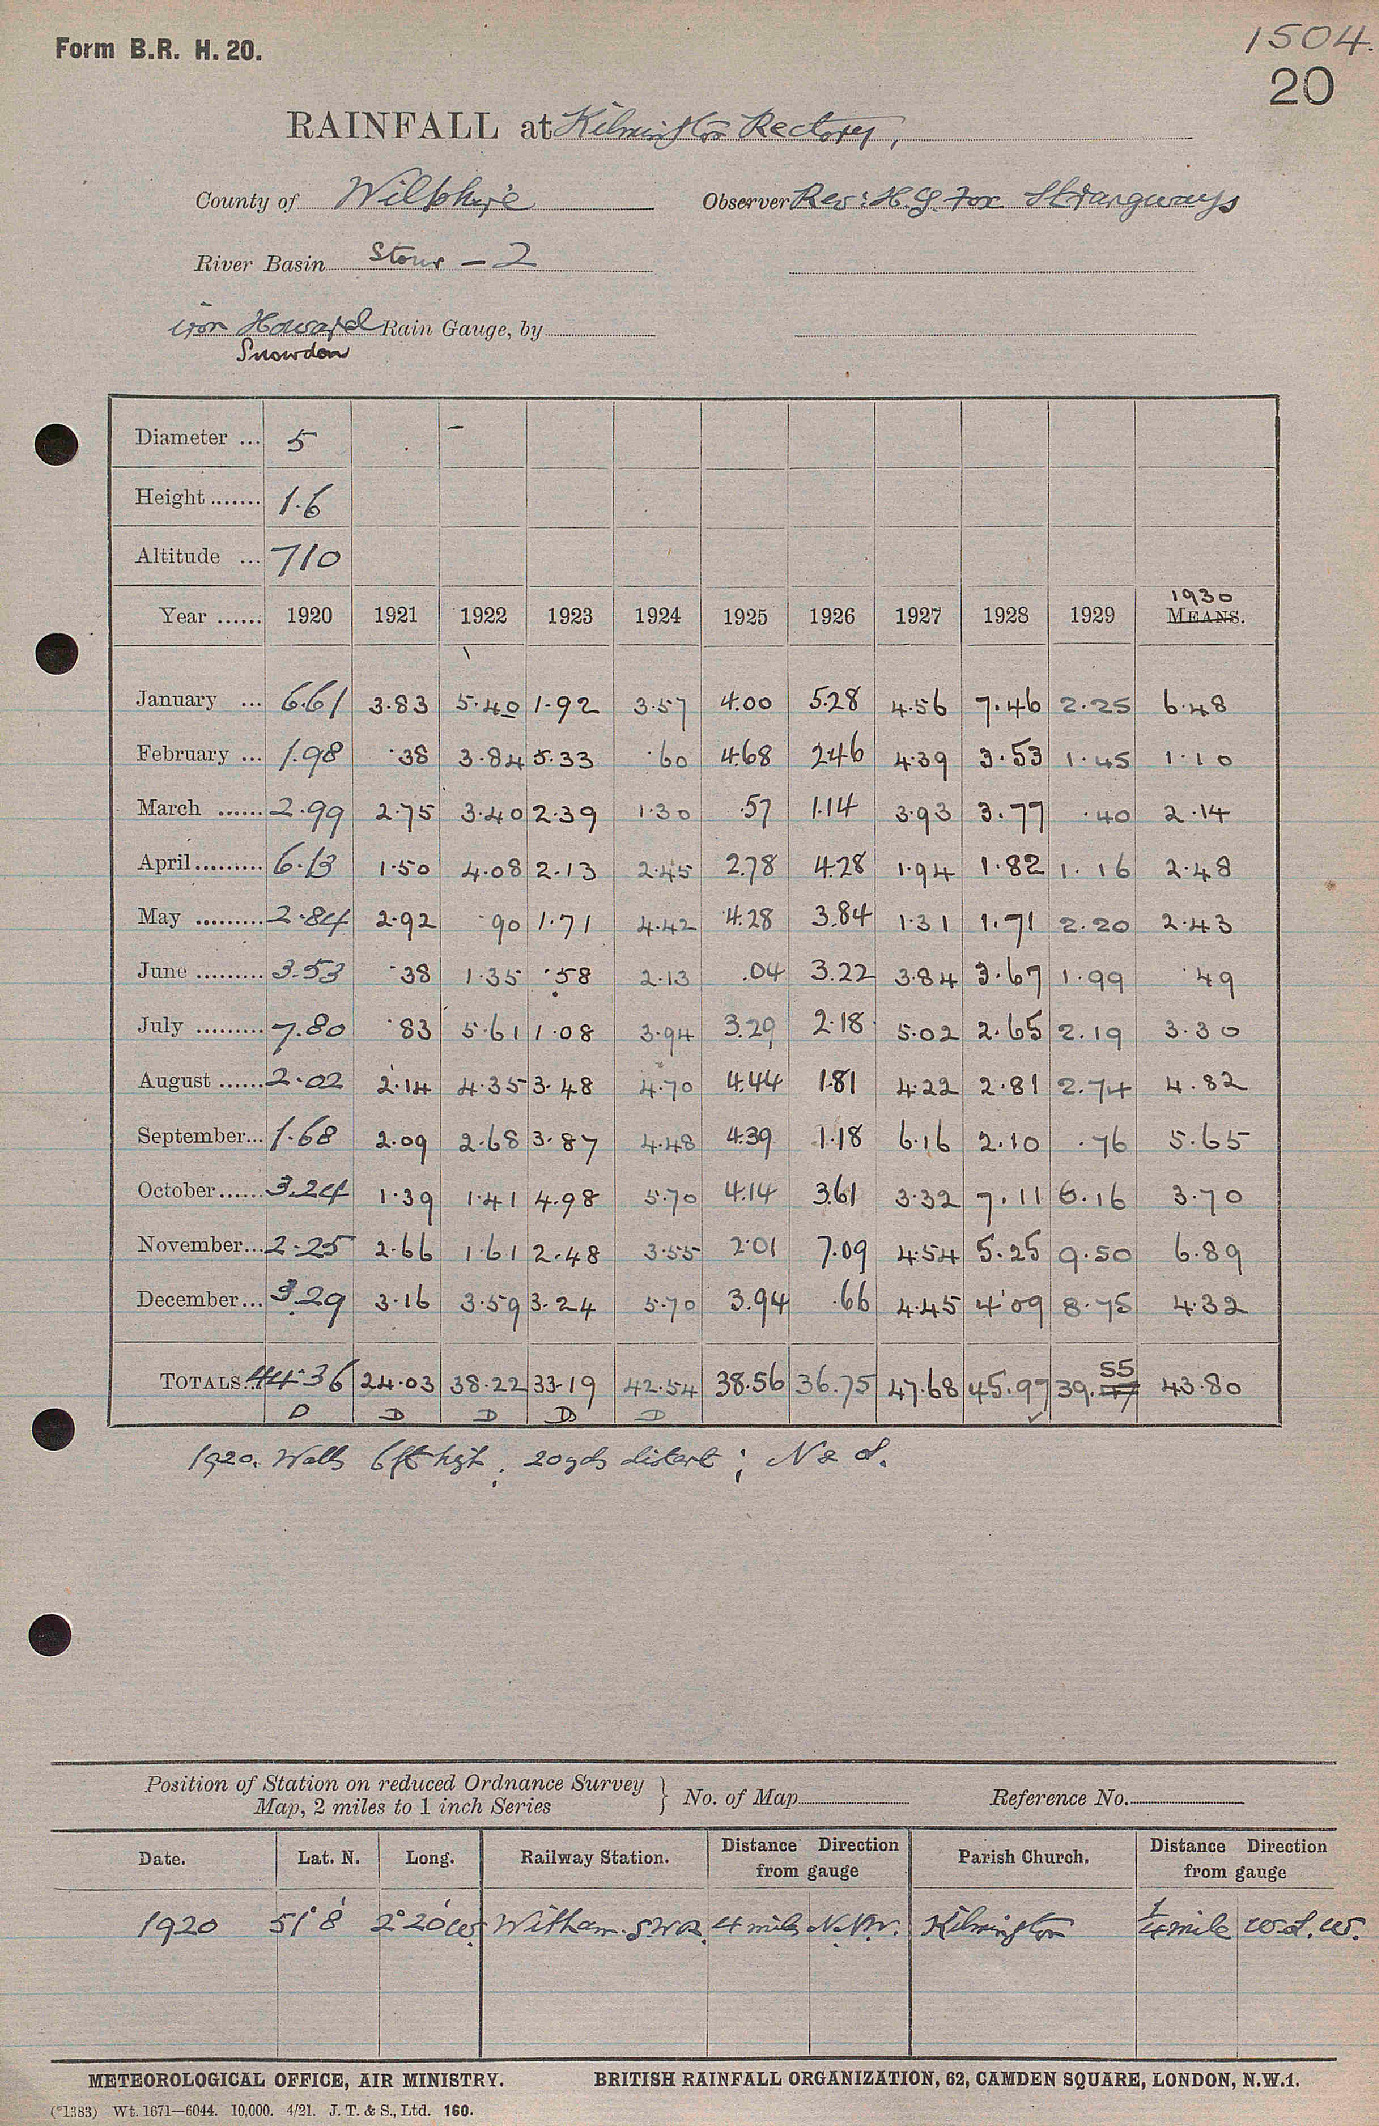 Form B.R. H. 20.
1504.
20
RAINFALL at Kilmington Rectory,
County of Wiltshire Observer Rev: H. G. Fox Strangways
River Basin Stour - 2
iron Howard Rain Gauge, by
Snowdon
Diameter ... 5 -
Height ....... 1.6
Altitude ... 710
1930
Year ...... 1920 1921 1922 1923 1924 1925 1926 1927 1928 1929 MEANS.
January ... 6.61 3.83 5.40 1.92 3.57 4.00 5.28 4.56 7.46 2.25 6.48
February ... 1.98 .38 3.84 5.33 .60 4.68 2.46 4.39 3.53 1.45 1.10
March ...... 2.99 2.75 3.40 2.39 1.30 .57 1.14 3.93 3.77 .40 2.14
April ......... 6.13 1.50 4.08 2.13 2.45 2.78 4.28 1.94 1.82 1.16 2.48
May ......... 2.84 2.92 .90 1.71 4.42 4.28 3.84 1.31 1.71 2.20 2.43
June ......... 3.53 .38 1.35 .58 2.13 .04 3.22 3.84 3.67 1.99 .49
July ......... 7.80 .83 5.61 1.08 3.94 3.29 2.18 5.02 2.65 2.19 3.30
August ...... 2.02 2.14 4.35 3.48 4.70 4.44 1.81 4.22 2.81 2.74 4.82
September... 1.68 2.09 2.68 3.87 4.48 4.39 1.18 6.16 2.10 .76 5.65
October...... 3.24 1.39 1.41 4.98 5.70 4.14 3.61 3.32 7.11 6.16 3.70
November... 2.25 2.66 1.61 2.48 3.55 2.01 7.09 4.54 5.25 9.50 6.89
December... 3.29 3.16 3.59 3.24 5.70 3.94 .66 4.45 4.09 8.75 4.32
55
TOTALS. 44.36 24.03 38.22 33.19 42.54 38.56 36.75 47.68 45.97 39.47 43.80
D D D D D ✓
1920. Walls 6ft high, 20yds distant; N & S.
Position of Station on reduced Ordnance Survey
Map, 2 miles to 1 inch Series } No. of Map Reference No.
Date. Lat. N. Long. Railway Station. Distance Direction from gauge Parish Church. Distance Direction from gauge
1920 51° 8' 2° 20' W. Witham. GWR. 4 miles N.N.W. Kilmington 1/4 mile W.S.W.
METEOROLOGICAL OFFICE, AIR MINISTRY. BRITISH RAINFALL ORGANIZATION, 62, CAMDEN SQUARE, LONDON, N.W.1.
(*1383) Wt. 1671—6044. 10,000. 4/21. J. T. & S., Ltd. 160.